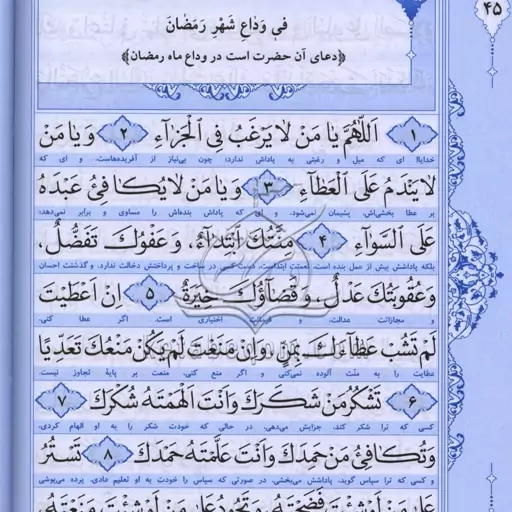 ۴۵
فی وَدَاعِ شَهْرِ رَمَضَانَ
﴿دعای آن حضرت است در وداع ماه رمضان﴾
﴿۱﴾ اَللّٰهُمَّ يَا مَنْ لَا يَرْغَبُ فِي الْجَزَآءِ ﴿۲﴾ وَ يَا مَنْ
خدایا! ای که میل و رغبتی به پاداش ندارد؛ چون بی‌نیاز از آفریده‌هاست. و ای که
لَا يَنْدَمُ عَلَى الْعَطَآءِ ﴿۳﴾ وَ يَا مَنْ لَا يُكَافِئُ عَبْدَهُ
بر عطا بخشی‌اش، پشیمان نمی‌شود. و ای که پاداش بنده‌اش را مساوی و برابر نمی‌دهد؛
عَلَى السَّوَآءِ ﴿۴﴾ مِنَّتُكَ ابْتِدَآءٌ، وَ عَفْوُكَ تَفَضُّلٌ،
بلکه پاداشش بیش از عمل بنده است. نعمتت ابتداست، دست کسی در ساخت و پرداختش دخالت ندارد. و گذشتت احسان
وَ عُقُوبَتُكَ عَدْلٌ، وَ قَضَآؤُكَ خِيَرَةٌ ﴿۵﴾ اِنْ اَعْطَيْتَ
و مجازاتت عدالت، و فرمانت اختیاری است. اگر عطا کنی،
لَمْ تَشُبْ عَطَآءَكَ بِمَنٍّ، وَ اِنْ مَنَعْتَ لَمْ يَكُنْ مَنْعُكَ تَعَدِّيًا
عطایت را به منّت آلوده نمی‌کنی و اگر منع کنی، منعت بر پایهٔ تجاوز نیست.
﴿۶﴾ تَشْكُرُ مَنْ شَكَرَكَ وَ اَنْتَ اَلْهَمْتَهُ شُكْرَكَ ﴿۷﴾
کسی که ترا شکر کند، جزایش می‌دهی، در حالی که خودت شکر را به او الهام کردی.
وَ تُكَافِئُ مَنْ حَمِدَكَ وَ اَنْتَ عَلَّمْتَهُ حَمْدَكَ ﴿۸﴾ تَسْتُرُ
و کسی که ترا سپاس گوید، پاداشش می‌بخشی، در صورتی که سپاس را خودت به او تعلیم دادی. پرده می‌پوشی
عَلَى مَنْ لَوْ شِئْتَ فَضَحْتَهُ، وَ تَجُودُ عَلَى مَنْ لَوْ شِئْتَ مَنَعْتَهُ،